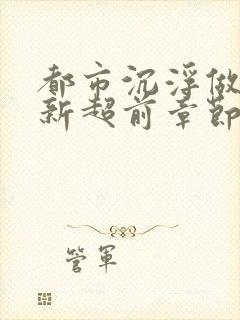 都市沉浮做
新超前章節
管軍